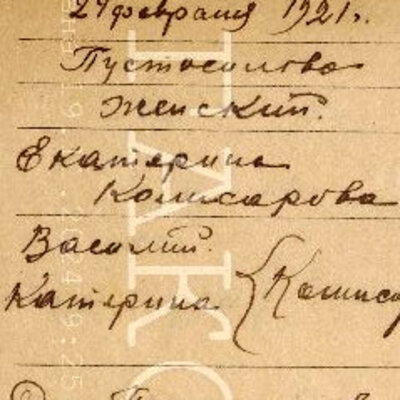 24 февраля 1921 г.
Пустоселово
Женский.
Екатерина
Комисарова
Василий
Катерина
Комиса
ГАКО